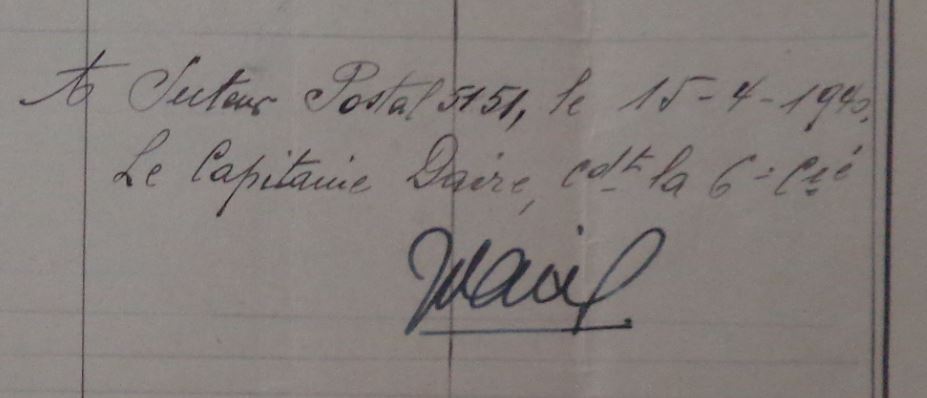 A Secteur Postal 5151, le 15-4-1940.
Le Capitaine Daire, cdt la 6e Cie